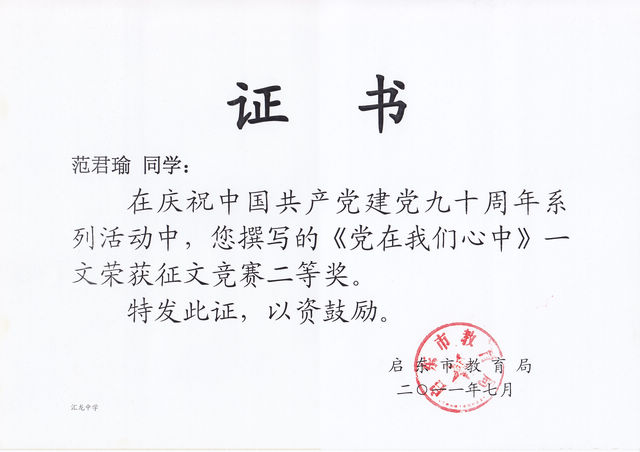 证 书
范君瑜 同学：
在庆祝中国共产党建党九十周年系
列活动中，您撰写的《党在我们心中》一
文荣获征文竞赛二等奖。
特发此证，以资鼓励。
启东市教育局
二〇一一年七月
启东市教育局
汇龙中学